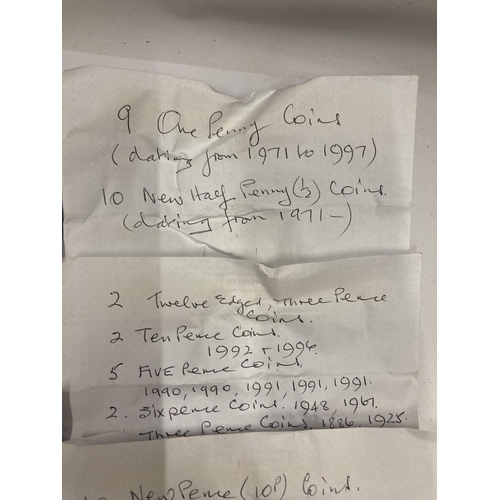 9 One Penny Coins
(dating from 1971 to 1997)
10 New Half Penny (½) Coins.
(dating from 1971-)
2 Twelve Edged, Three Pence
Coins.
2 Ten Pence Coins.
1992 + 1996.
5 Five Pence Coins
1990, 1990, 1991, 1991, 1991.
2. Sixpence Coins. 1948, 1967.
Three Pence Coins. 1886, 1925.
10 New Pence (10P) Coins.